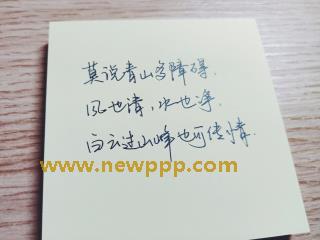 莫说青山多障碍.
风也清,水也净.
白云过山峰也可传情.
www.newppp.com